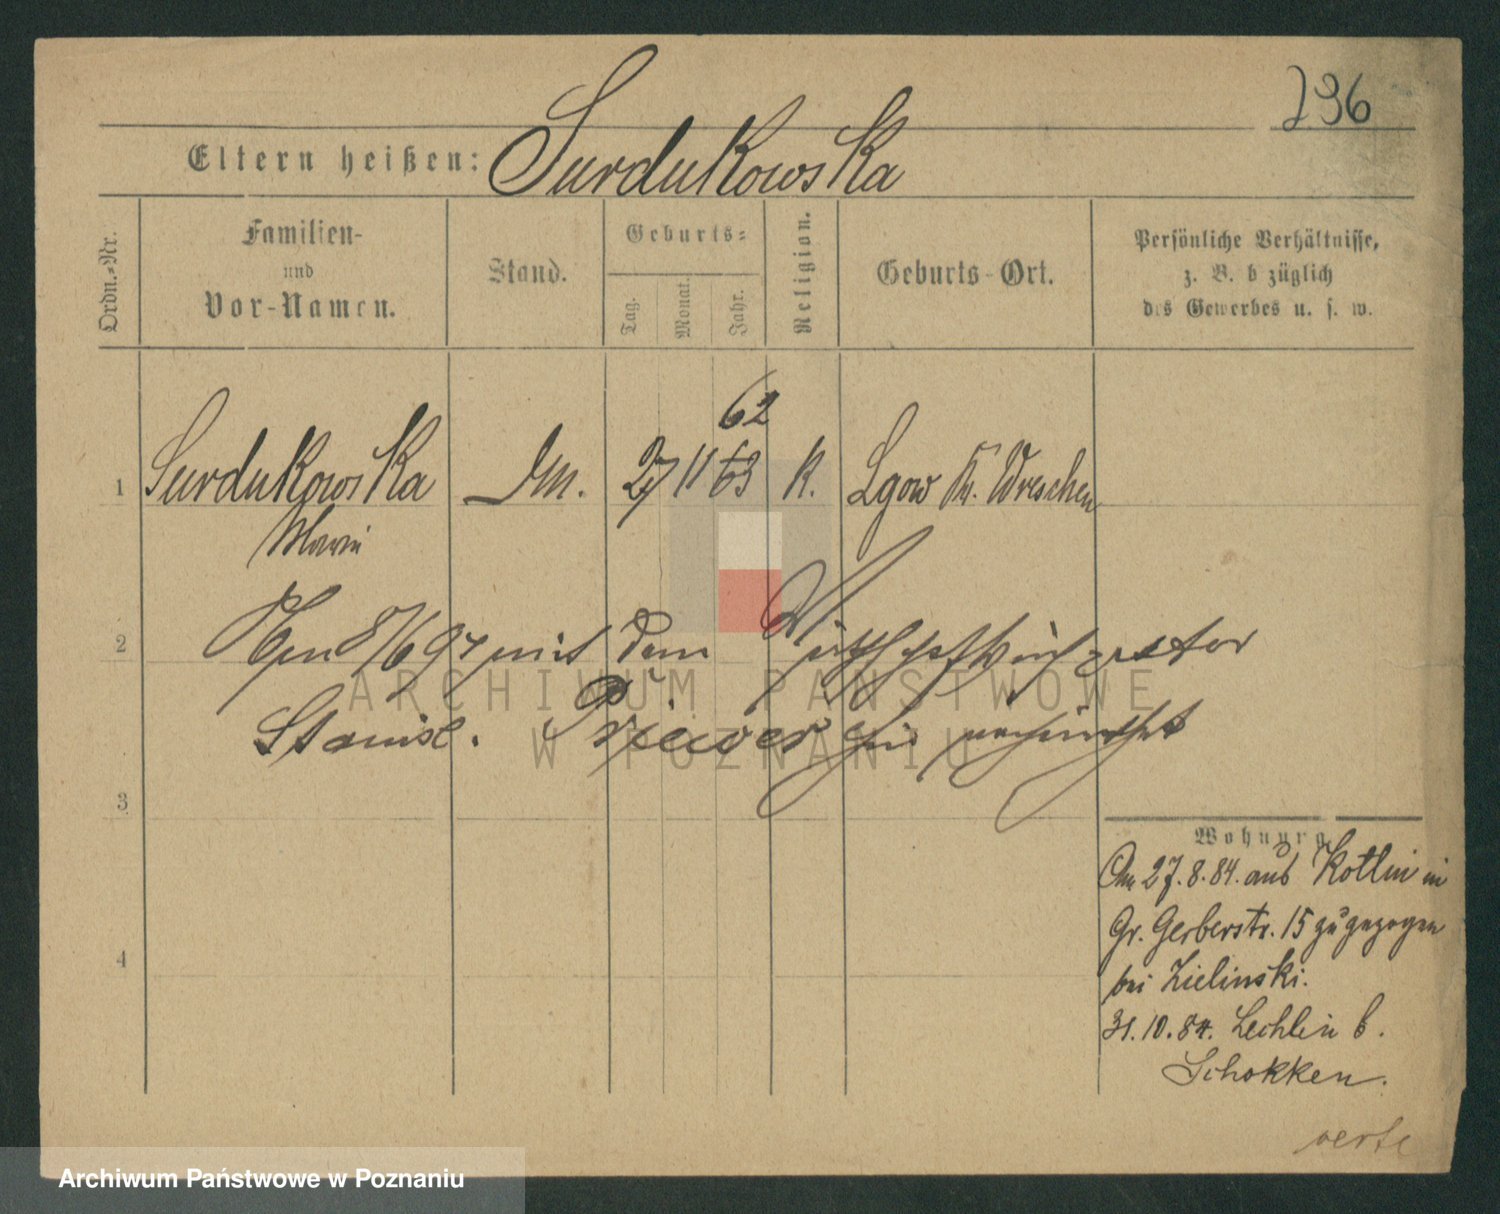 236
Eltern heißen: Surdukowska
Ordn.-Nr.
Familien-
und
Vor-Namen.
Stand.
Geburts-
Tag.
Monat.
Jahr.
Religion.
Geburts-Ort.
Persönliche Verhältnisse,
z. B. b züglich
des Gewerbes u. s. w.
62
1 Surdukowska 27 11 63 K. Lgow Kr. Wreschen
Marie
2 8/6 94 mit dem
ARCHIWUM PAŃSTWOWE
Stanisl.
W POZNANIU
3
Wohnung
Am 27.8.84. aus Kotlin in
Gr. Gerberstr. 15 zugezogen
bei Zielinski.
4
31.10.84. Lechlin b.
Schokken.
verte
Archiwum Państwowe w Poznaniu